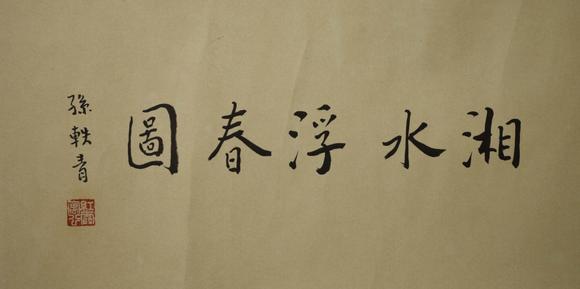 湘水浮春圖
孫軼青